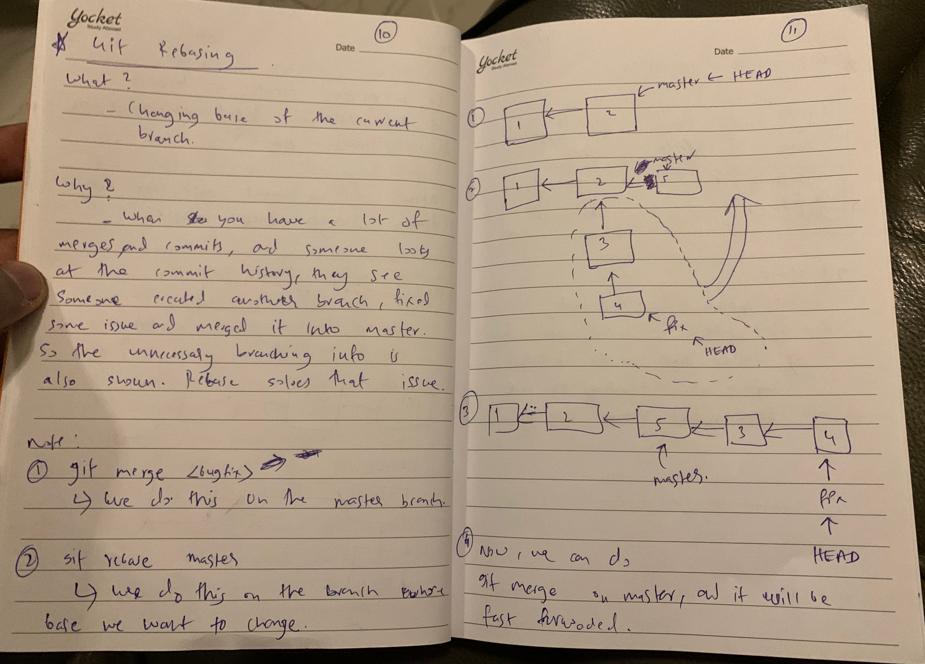 Yocket
Study Abroad
10
Date
Git Rebasing
What?
- Changing base of the current
branch.
Why?
- When you have a lot of
merges and commits, and someone looks
at the commit history, they see
someone created another branch, fixed
some issue and merged it into master.
So the unnecessary branching info is
also shown. Rebase solves that issue.
Note:
① git merge <bugfix>
↳ we do this on the master branch.
② git rebase master
↳ we do this on the branch whose
base we want to change.
Yocket
Study Abroad
11
Date
① 1 ← 2 ← master ← HEAD
② 1 ← 2 ← 5 ← master
3
4
fix
HEAD
③ 1 ← 2 ← 5 ← 3 ← 4
master.
fix
HEAD
④ Now, we can do
git merge on master, and it will be
fast forwarded.